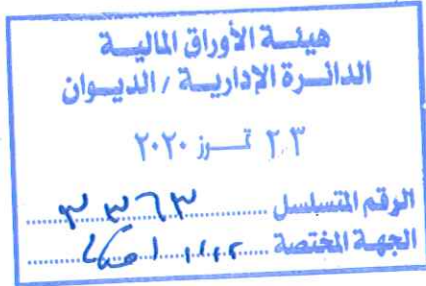 هيئة الأوراق المالية
الدائرة الإدارية / الديوان
٢٣ تموز ٢٠٢٠
الرقم المتسلسل ٣٣٦٣
الجهة المختصة